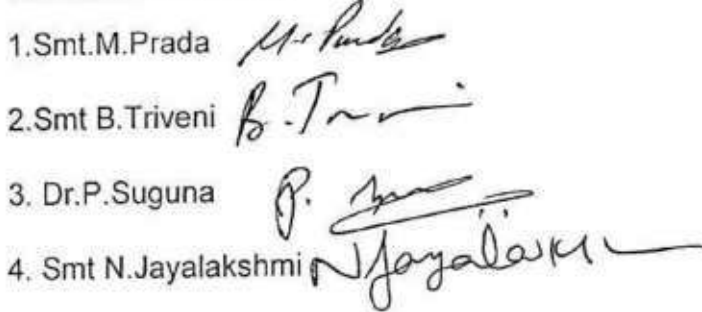 1.Smt.M.Prada
2.Smt B.Triveni B.
3. Dr.P.Suguna P.
4. Smt N.Jayalakshmi N Jayalakshmi